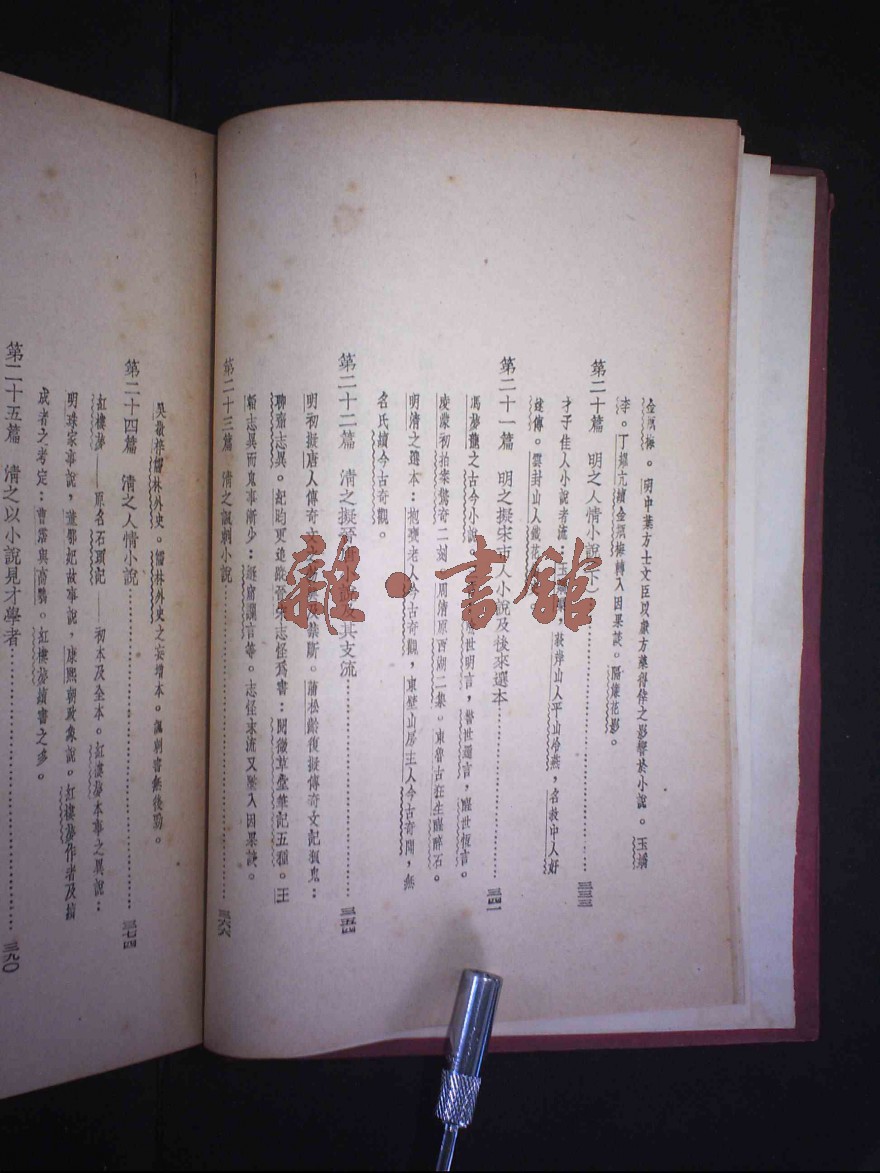 金瓶梅。明中葉方士文臣以獻方藥得倖之影響於小說。玉嬌
李。丁耀亢續金瓶梅轉入因果談。隔簾花影。
第二十篇 明之人情小說(下)……三三三
才子佳人小說者流:玉嬌梨,荻岸山人平山冷燕,名敎中人好
逑傳。雲封山人鐵花
第二十一篇 明之擬宋市人小說及後來選本……三四一
馮夢龍之古今小說。喻世明言,警世通言,醒世恆言。
凌濛初拍案驚奇二刻。周清原西湖二集。東魯古狂生醉醒石。
明清之選本:抱甕老人今古奇觀,東壁山房主人今古奇聞,無
名氏續今古奇觀。
第二十二篇 清之擬晉唐小說及其支流……三五四
明初擬唐人傳奇文 禁斷。蒲松齡復擬傳奇文記狐鬼:
聊齋志異。紀昀更追蹤晉宋志怪爲書:閱微草堂筆記五種。王
韜志異而鬼事漸少:
等。志怪末流又墜入因果談。
第二十三篇 清之諷刺小說……三六六
吳敬梓儒林外史。儒林外史之妄增本。諷刺書無後勁。
第二十四篇 清之人情小說……三七四
紅樓夢——原名石頭記——初本及全本。紅樓夢本事之異說:
明珠家事說,董鄂妃故事說,康熙朝政象說。紅樓夢作者及續
成者之考定:曹霑與高鶚。紅樓夢續書之多。
第二十五篇 清之以小說見才學者……三九〇
雜·書館